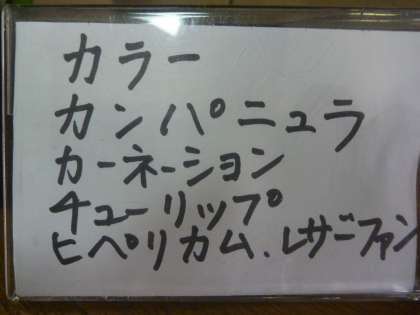 カラー
カンパニュラ
カーネーション
チューリップ
ヒペリカム、レザーファン